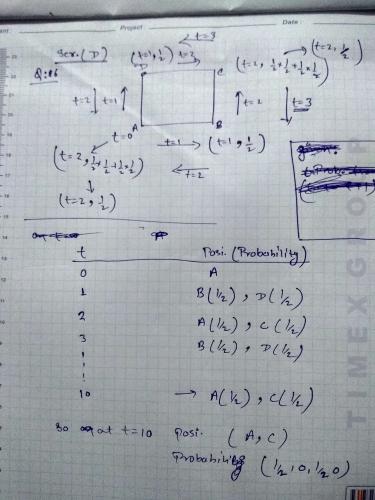 Project
Date :
Ser. (D) (t=1, 1/2) t=2 t=3 (t=2, 1/2)
Q:86 D C (t=2, 1/2×1/2+1/2×1/2)
t=2 t=1 t=2 t=3
A B
t=0 t=1 (t=1, 1/2)
(t=2, 1/2×1/2+1/2×1/2) t=2
(t=2, 1/2)
t Posi. (Probability)
0 A
1 B(1/2), D(1/2)
2 A(1/2), C(1/2)
3 B(1/2), D(1/2)
10 → A(1/2), C(1/2)
so at t=10 Posi. (A, C)
Probability (1/2, 0, 1/2, 0)
TIMEX GROUP